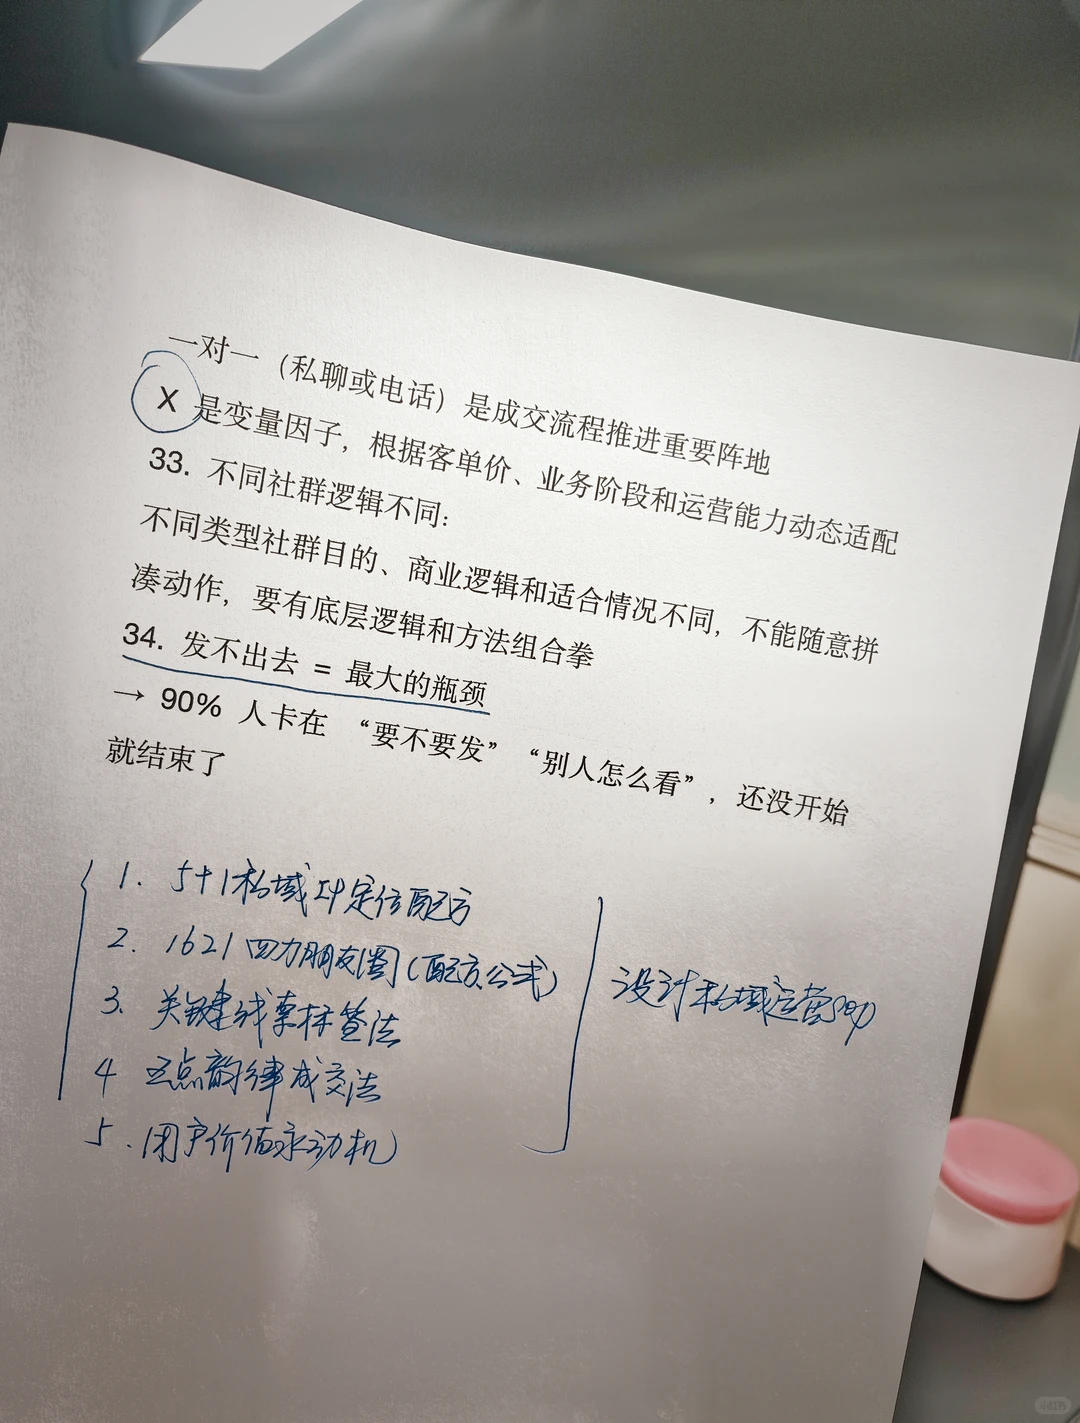 一对一（私聊或电话）是成交流程推进重要阵地
X 是变量因子，根据客单价、业务阶段和运营能力动态适配
33. 不同社群逻辑不同：
不同类型社群目的、商业逻辑和适合情况不同，不能随意拼
凑动作，要有底层逻辑和方法组合拳
34. 发不出去 = 最大的瓶颈
→ 90% 人卡在 “要不要发” “别人怎么看”，还没开始
就结束了
1. 5+1私域IP定位配方
2. 1621四力朋友圈(配方公式)
3. 关键线索标签法
4 五点韵律成交法
5.用户价值永动机
设计私域运营sop
小红书